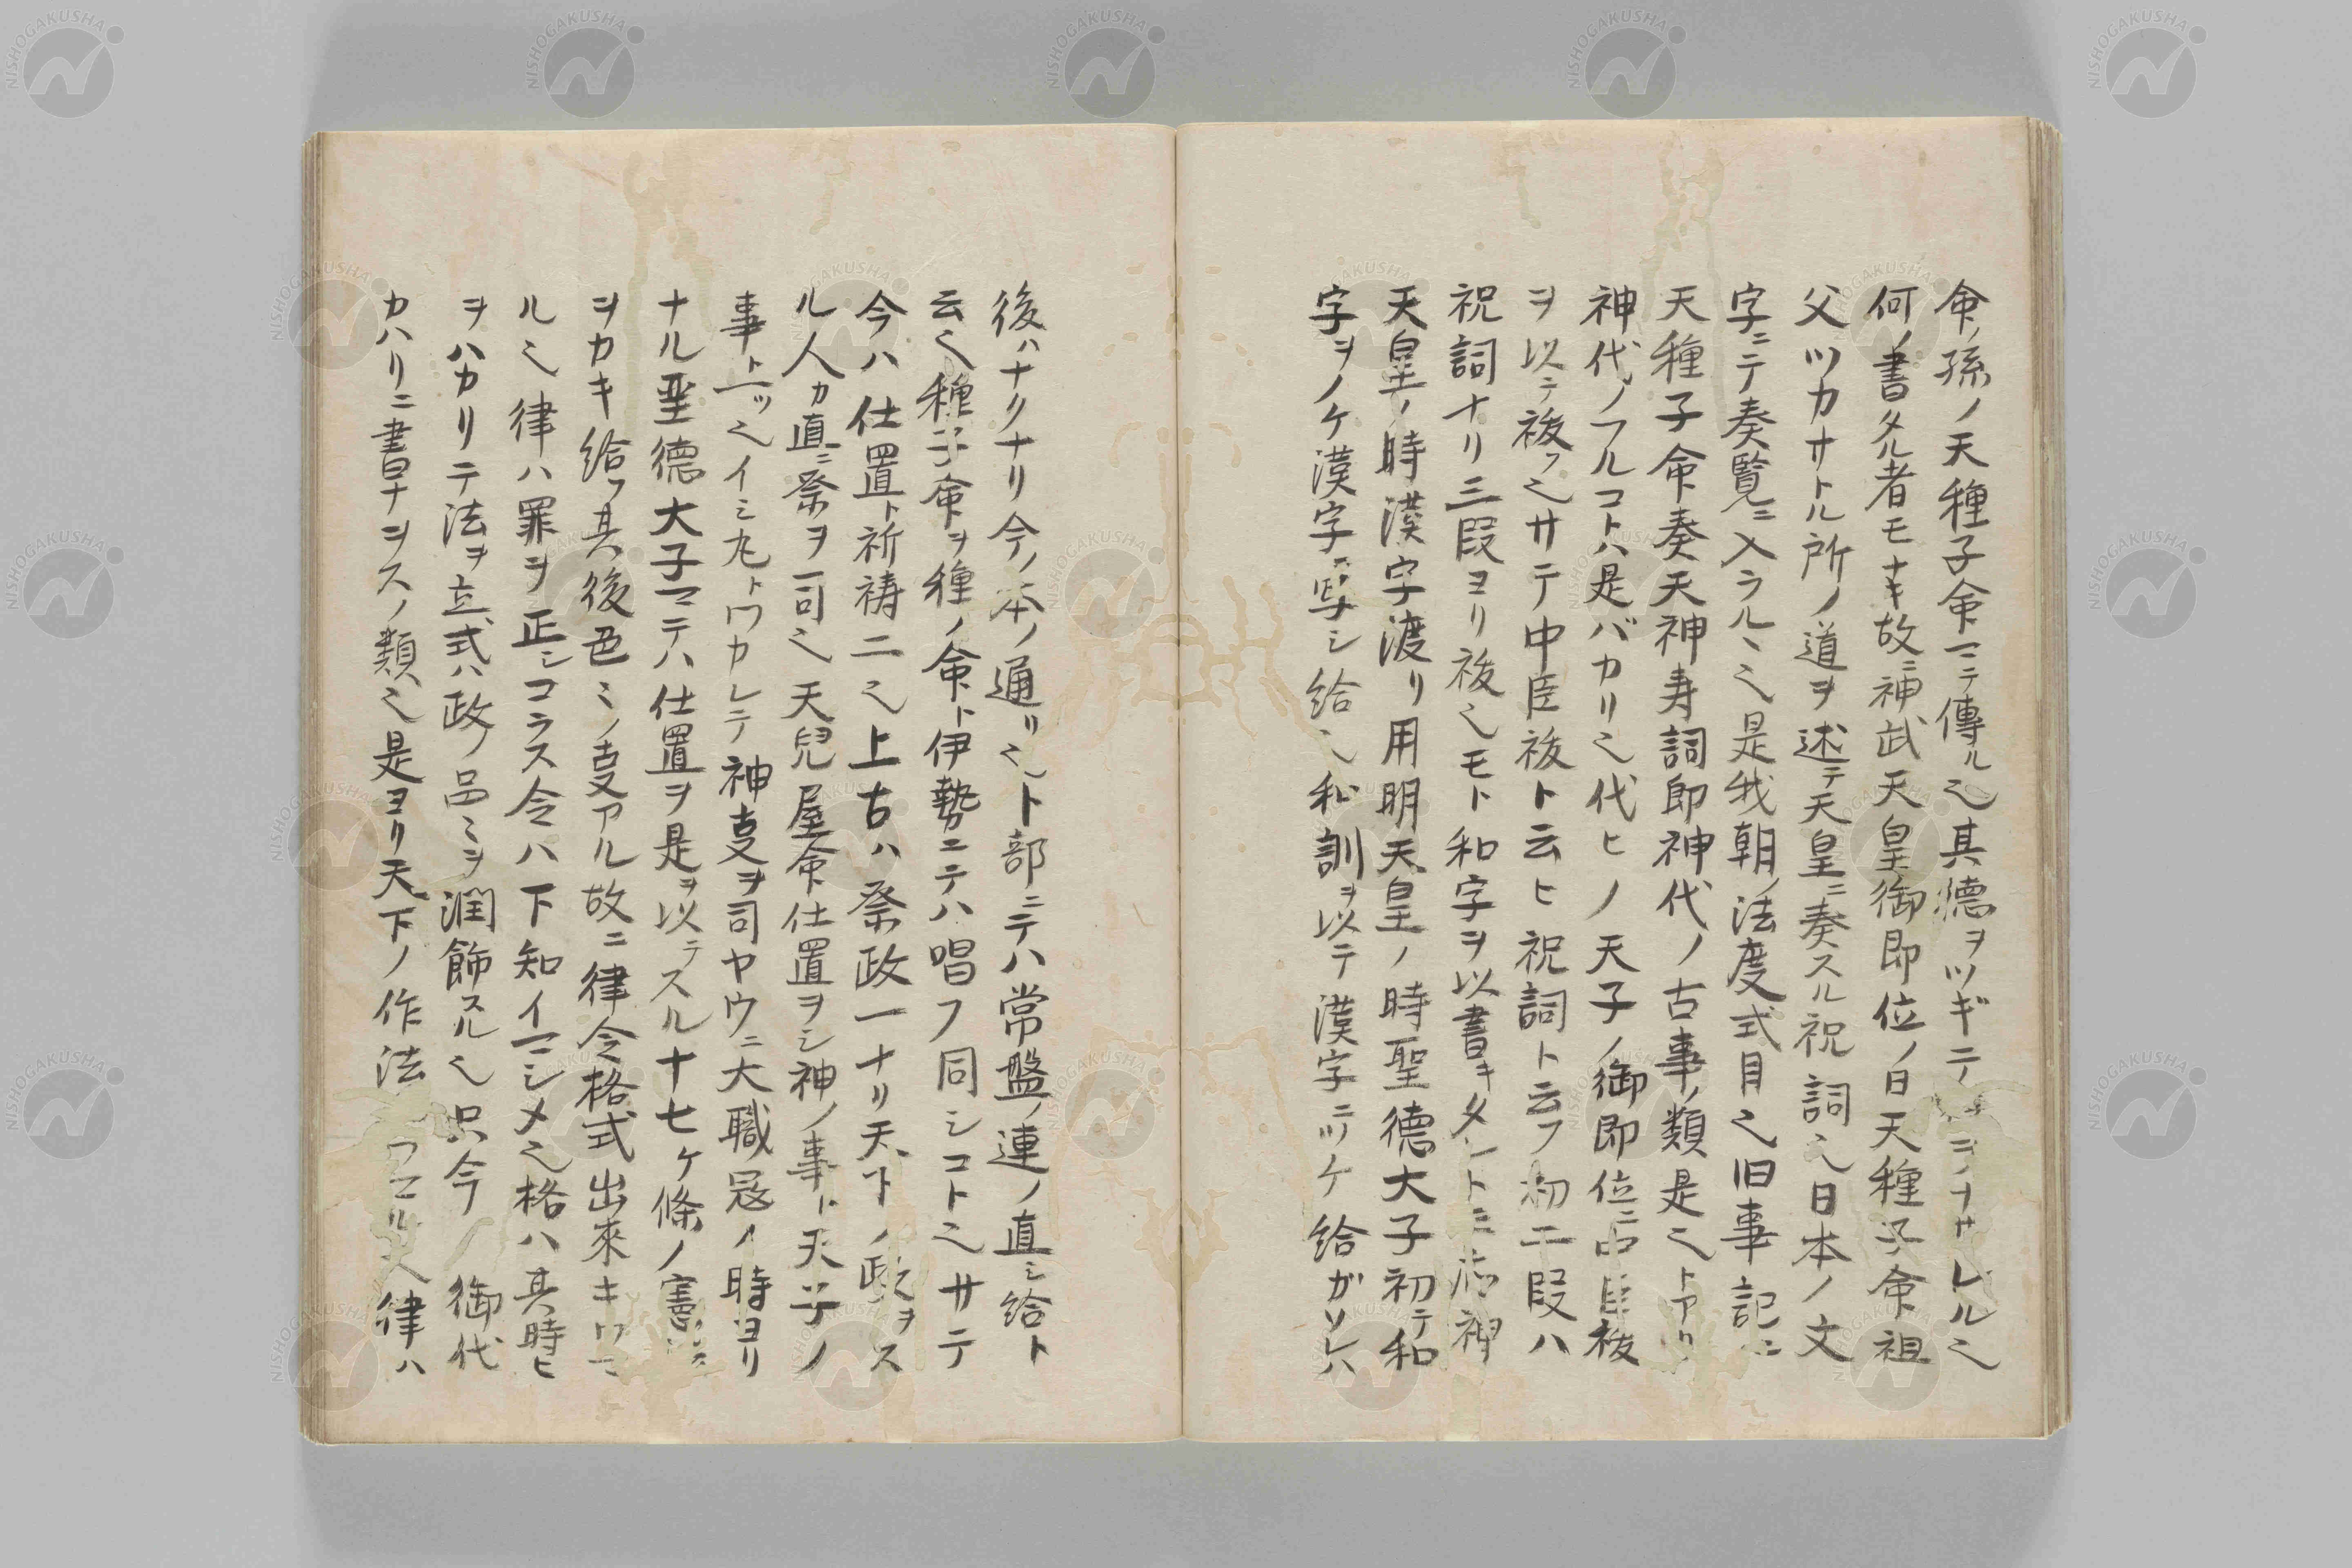 命ノ孫ノ天種子命マテ傳ル也其德ヲツギテ ヲナサレルル也
何ノ書タル者モナキ故ニ神武天皇御即位ノ日天種子命祖
父ツカサトル所ノ道ヲ述テ天皇ニ奏スル祝詞也日本ノ文
字ニテ奏覧ニ入ラルヽ也是我朝ノ法度式目也旧事記ニ
天種子命奏天神寿詞即神代ノ古事ノ類是也トアリ
神代ノフルコトハ是バカリ也代ヒノ天子ノ御即位ニ中臣祓
ヲ以テ祓フ也サテ中臣祓ト云ヒ祝詞ト云フ初二段ハ
祝詞ナリ三段ヨリ祓也モト和字ヲ以書キタ ト 應神
天皇ノ時漢字渡リ用明天皇ノ時聖德大子初テ和
字ヲノケ漢字ニ写シ給也和訓ヲ以テ漢字ニツケ給ガソレハ
後ハナクナリ今ノ本ノ通リ也卜部ニテハ常盤ノ連ノ直シ給ト
云也種子命ヲ種ノ命ト伊勢ニテハ唱フ同シコト也サテ
今ハ仕置ト祈祷二也上古ハ祭政一ナリ天下ノ政ヲス
ル人カ直ニ祭ヲ司也天兒屋命仕置ヲシ神ノ事ト天子ノ
事ト一ツ也イミ九トワカレテ神叓ヲ司ヤウニ大職冠ノ時ヨリ
ナル聖德大子マテハ仕置ヲ是ヲ以テスル十七ケ條ノ憲法
ヲカキ給フ其後色ミノ叓アル故ニ律令格式出來キワマ
ル也律ハ罪ヲ正シコラス令ハ下知イマシメ也格ハ其時ヒ
ヲハカリテ法ヲ立式ハ政ノ品ミヲ潤飾スル也只今ノ御代
カハリニ書ナヲスノ類也是ヨリ天下ノ作法 律ハ